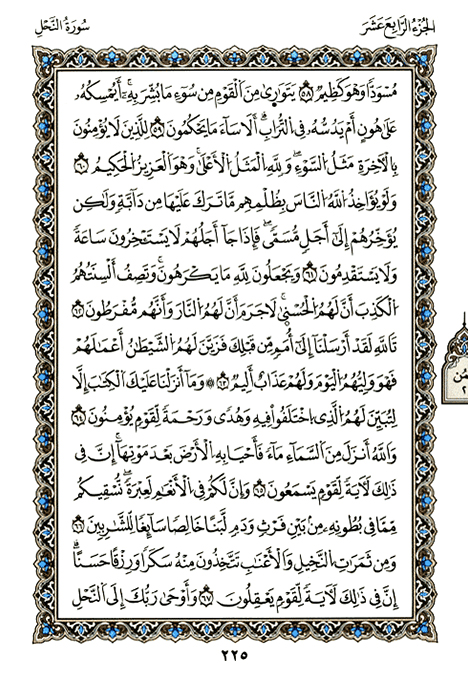 الجُزْءُ الرَّابِعَ عَشَرَ
سُورَةُ النَّحْلِ
مُسْوَدّاً وَهُوَ كَظِيمٌ ٥٨ يَتَوَارَىٰ مِنَ الْقَوْمِ مِن سُوءِ مَا بُشِّرَ بِهِ أَيُمْسِكُهُ
عَلَىٰ هُونٍ أَمْ يَدُسُّهُ فِي التُّرَابِ أَلَا سَاءَ مَا يَحْكُمُونَ ٥٩ لِلَّذِينَ لَا يُؤْمِنُونَ
بِالْآخِرَةِ مَثَلُ السَّوْءِ وَلِلَّهِ الْمَثَلُ الْأَعْلَىٰ وَهُوَ الْعَزِيزُ الْحَكِيمُ ٦٠
وَلَوْ يُؤَاخِذُ اللَّهُ النَّاسَ بِظُلْمِهِم مَّا تَرَكَ عَلَيْهَا مِن دَابَّةٍ وَلَٰكِن
يُؤَخِّرُهُمْ إِلَىٰ أَجَلٍ مُّسَمًّى فَإِذَا جَا أَجَلُهُمْ لَا يَسْتَأْخِرُونَ سَاعَةً
وَلَا يَسْتَقْدِمُونَ ٦١ وَيَجْعَلُونَ لِلَّهِ مَا يَكْرَهُونَ وَتَصِفُ أَلْسِنَتُهُمُ
الْكَذِبَ أَنَّ لَهُمُ الْحُسْنَىٰ لَا جَرَمَ أَنَّ لَهُمُ النَّارَ وَأَنَّهُم مُّفْرَطُونَ ٦٢
تَاللَّهِ لَقَدْ أَرْسَلْنَا إِلَىٰ أُمَمٍ مِّن قَبْلِكَ فَزَيَّنَ لَهُمُ الشَّيْطَانُ أَعْمَالَهُمْ
فَهْوَ وَلِيُّهُمُ الْيَوْمَ وَلَهُمْ عَذَابٌ أَلِيمٌ ٦٣ ۞ وَمَا أَنزَلْنَا عَلَيْكَ الْكِتَابَ إِلَّا
لِتُبَيِّنَ لَهُمُ الَّذِي اخْتَلَفُوا فِيهِ وَهُدًى وَرَحْمَةً لِّقَوْمٍ يُؤْمِنُونَ ٦٤
وَاللَّهُ أَنزَلَ مِنَ السَّمَاءِ مَاءً فَأَحْيَا بِهِ الْأَرْضَ بَعْدَ مَوْتِهَا إِنَّ فِي
ذَٰلِكَ لَآيَةً لِّقَوْمٍ يَسْمَعُونَ ٦٥ وَإِنَّ لَكُمْ فِي الْأَنْعَامِ لَعِبْرَةً نُّسْقِيكُم
مِّمَّا فِي بُطُونِهِ مِن بَيْنِ فَرْثٍ وَدَمٍ لَّبَنًا خَالِصًا سَائِغًا لِّلشَّارِبِينَ ٦٦
وَمِن ثَمَرَاتِ النَّخِيلِ وَالْأَعْنَابِ تَتَّخِذُونَ مِنْهُ سَكَرًا وَرِزْقًا حَسَنًا
إِنَّ فِي ذَٰلِكَ لَآيَةً لِّقَوْمٍ يَعْقِلُونَ ٦٧ وَأَوْحَىٰ رَبُّكَ إِلَى النَّحْلِ
٢٢٥